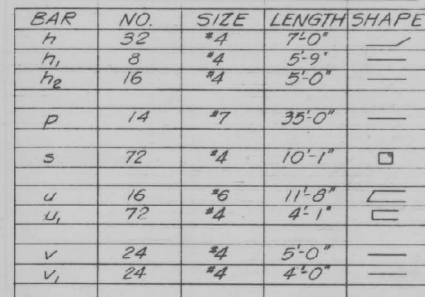 BAR NO. SIZE LENGTH SHAPE
h 32 #4 7'-0"
h1 8 #4 5'-9"
h2 16 #4 5'-0"
p 14 #7 35'-0"
s 72 #4 10'-1"
u 16 #6 11'-8"
u1 72 #4 4'-1"
v 24 #4 5'-0"
v1 24 #4 4'-0"